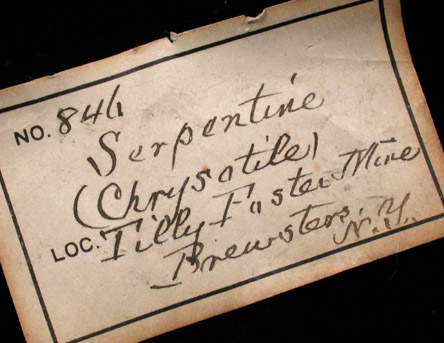 NO. 846
Serpentine
(Chrysotile)
LOC. Tilly Foster Mine
Brewsters, N.Y.